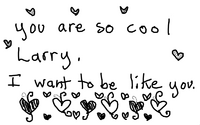 you are so cool
Larry.
I want to be like you.